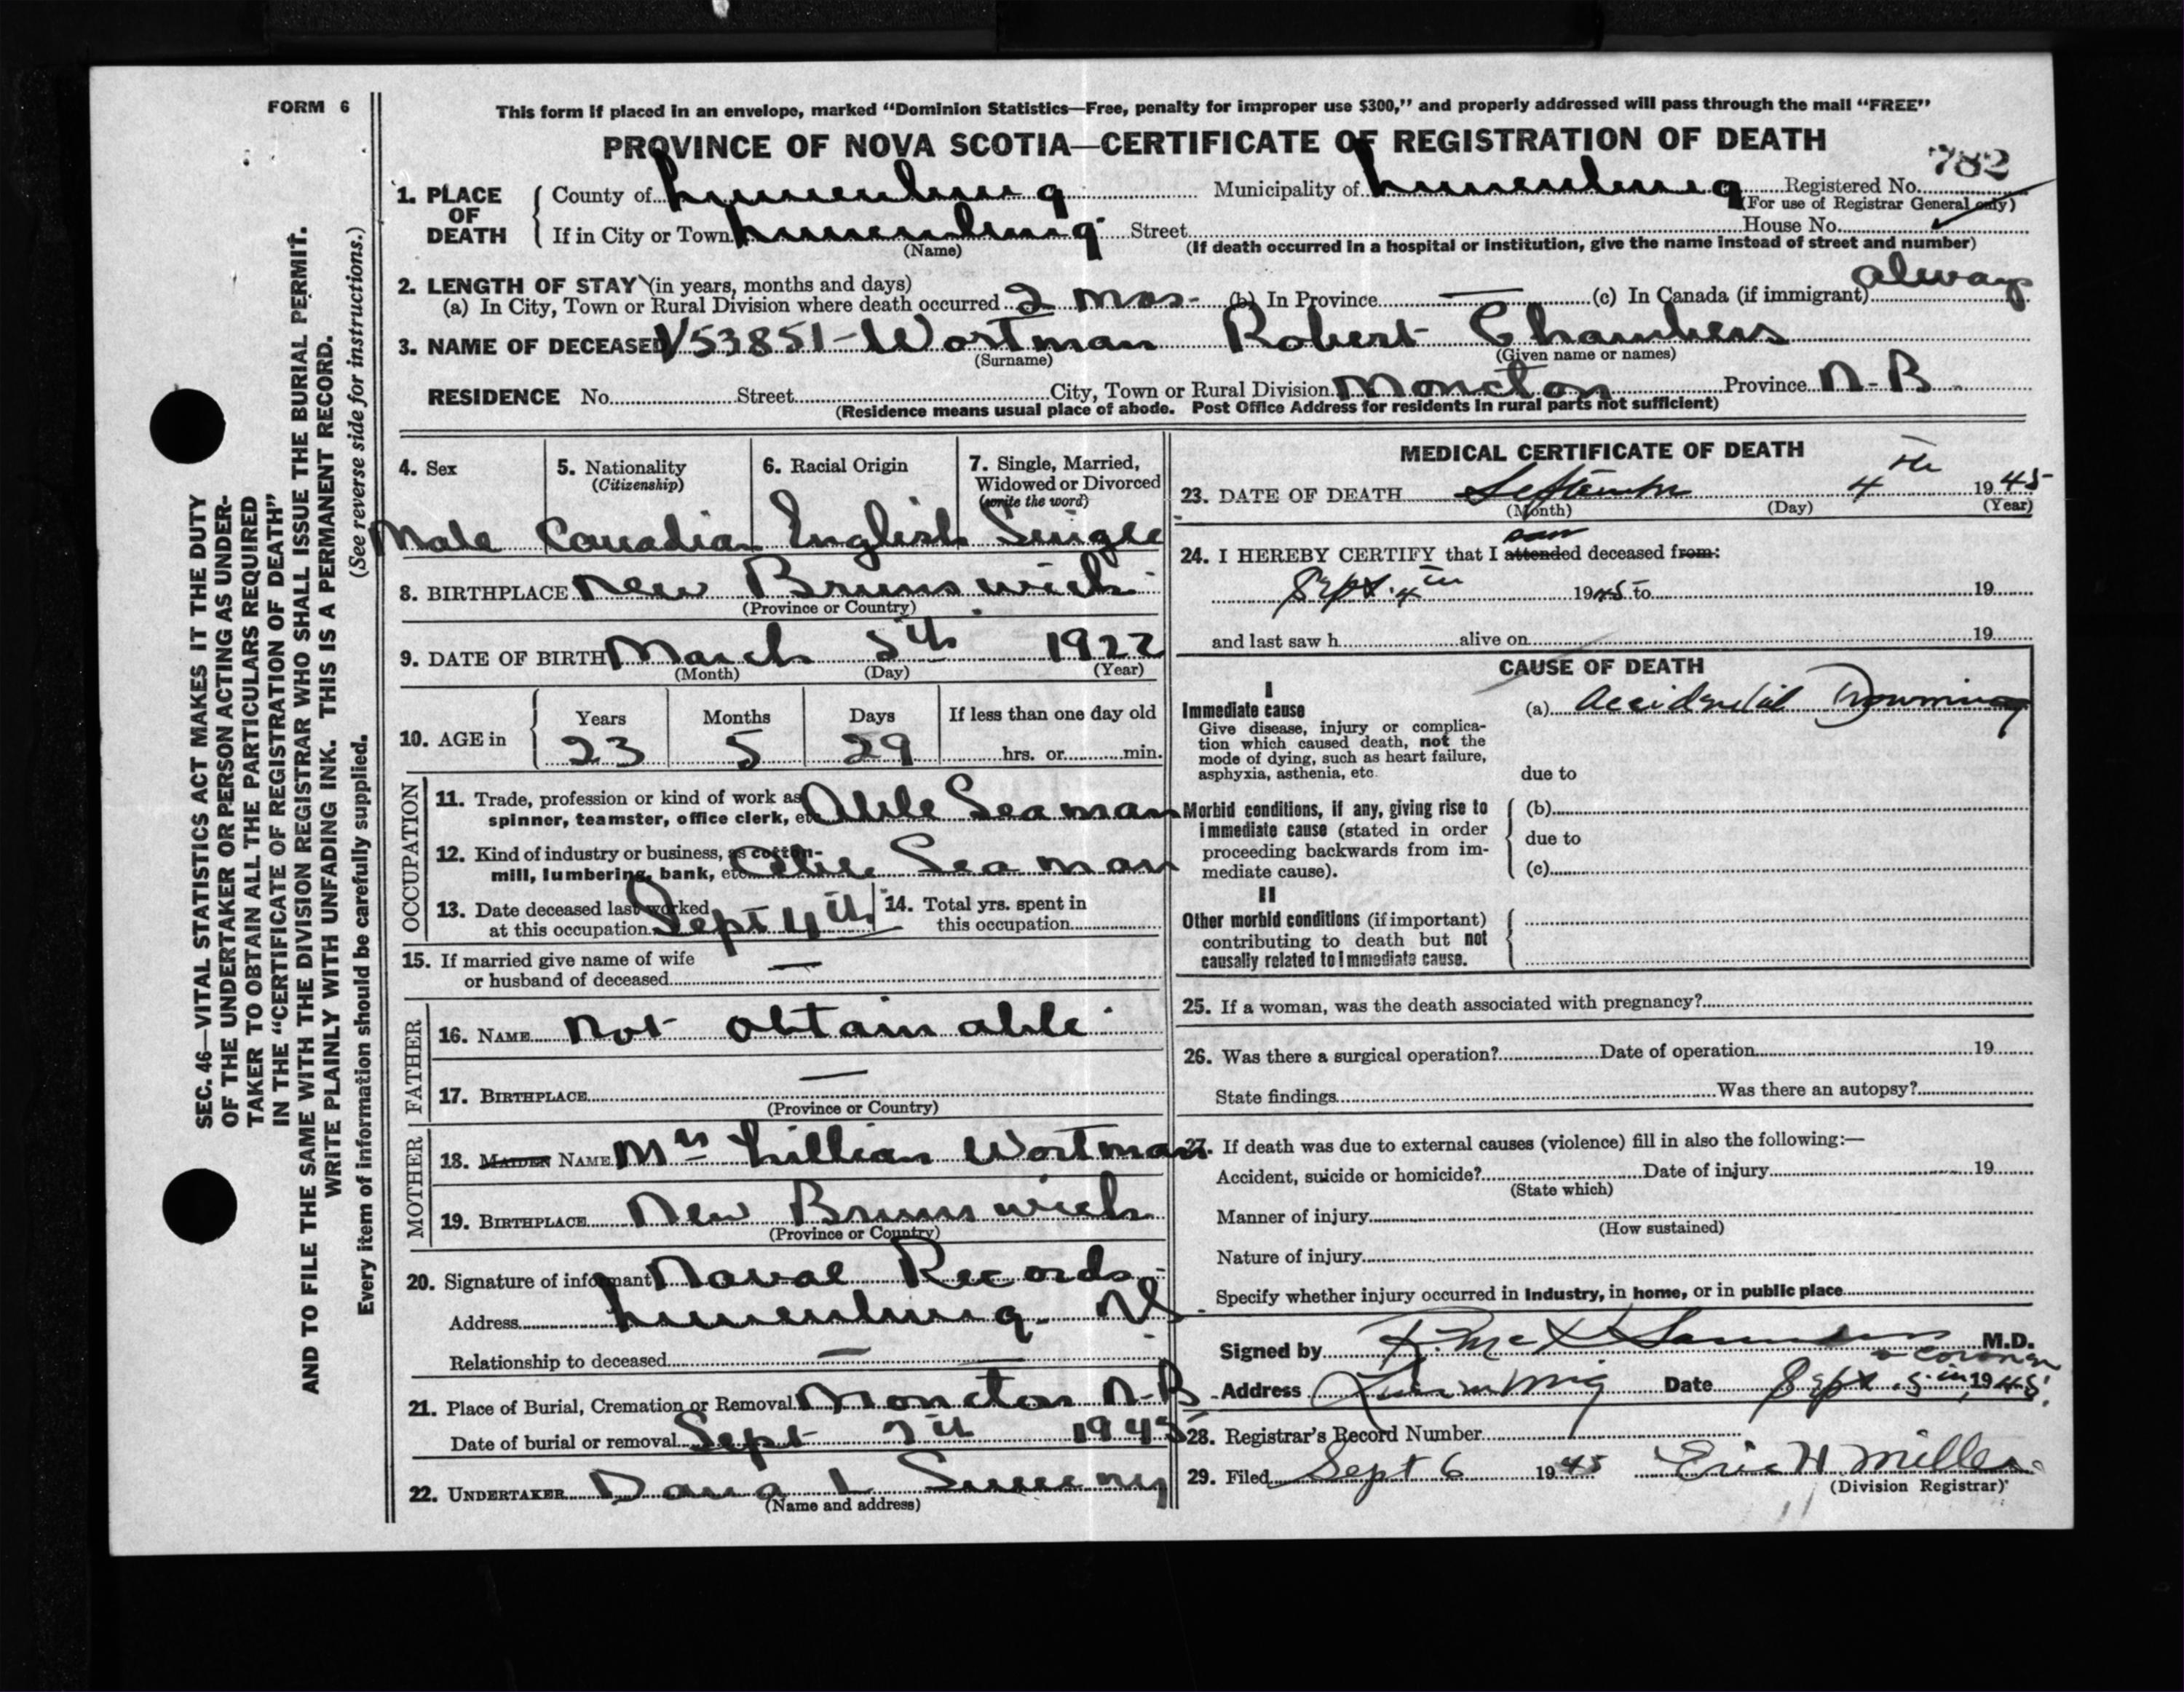 FORM 6
This form if placed in an envelope, marked "Dominion Statistics—Free, penalty for improper use $300," and properly addressed will pass through the mail "FREE"
PROVINCE OF NOVA SCOTIA—CERTIFICATE OF REGISTRATION OF DEATH
782
1. PLACE OF DEATH
County of Lunenburg Municipality of Lunenburg Registered No.
(For use of Registrar General only)
If in City or Town Lunenburg Street House No.
(Name) (If death occurred in a hospital or institution, give the name instead of street and number)
2. LENGTH OF STAY (in years, months and days)
(a) In City, Town or Rural Division where death occurred 2 mos- (b) In Province — (c) In Canada (if immigrant) always
3. NAME OF DECEASED V53851- Wortman Robert Chambers
(Surname) (Given name or names)
RESIDENCE No. Street City, Town or Rural Division Moncton Province N-B.
(Residence means usual place of abode. Post Office Address for residents in rural parts not sufficient)
4. Sex
Male
5. Nationality
(Citizenship)
Canadian
6. Racial Origin
English
7. Single, Married,
Widowed or Divorced
(write the word)
Single
8. BIRTHPLACE New Brunswick
(Province or Country)
9. DATE OF BIRTH March 5th 1922
(Month) (Day) (Year)
10. AGE in
Years Months Days If less than one day old
23 5 29 hrs. or min.
OCCUPATION
11. Trade, profession or kind of work as
spinner, teamster, office clerk, etc. Able Seaman
12. Kind of industry or business, as cotton-
mill, lumbering, bank, etc. Able Seaman
13. Date deceased last worked
at this occupation Sept 4th
14. Total yrs. spent in
this occupation
15. If married give name of wife
or husband of deceased —
FATHER
16. NAME Not obtainable
17. BIRTHPLACE —
(Province or Country)
MOTHER
18. MAIDEN NAME Mrs Lillian Wortman
19. BIRTHPLACE New Brunswick
(Province or Country)
20. Signature of informant Naval Records
Address Lunenburg. NS.
Relationship to deceased —
21. Place of Burial, Cremation or Removal Moncton N-B
Date of burial or removal Sept 7th 1945
22. UNDERTAKER
(Name and address)
MEDICAL CERTIFICATE OF DEATH
23. DATE OF DEATH September 4th 1945
(Month) (Day) (Year)
saw
24. I HEREBY CERTIFY that I attended deceased from:
Sept. 4th 1945 to 19
and last saw h alive on 19
CAUSE OF DEATH
I
Immediate cause
Give disease, injury or complica-
tion which caused death, not the
mode of dying, such as heart failure,
asphyxia, asthenia, etc.
(a) Accidental Drowning
due to
Morbid conditions, if any, giving rise to
immediate cause (stated in order
proceeding backwards from im-
mediate cause).
(b)
due to
(c)
II
Other morbid conditions (if important)
contributing to death but not
causally related to immediate cause.
25. If a woman, was the death associated with pregnancy?
26. Was there a surgical operation? Date of operation 19
State findings Was there an autopsy?
27. If death was due to external causes (violence) fill in also the following:—
Accident, suicide or homicide? Date of injury 19
(State which)
Manner of injury
(How sustained)
Nature of injury
Specify whether injury occurred in industry, in home, or in public place
Signed by R. McK Saunders M.D.
& coroner
Address Lunenburg Date Sept. 5th, 1945.
28. Registrar's Record Number
29. Filed Sept 6 1945 Eric H. Miller
(Division Registrar)
SEC. 46—VITAL STATISTICS ACT MAKES IT THE DUTY
OF THE UNDERTAKER OR PERSON ACTING AS UNDER-
TAKER TO OBTAIN ALL THE PARTICULARS REQUIRED
IN THE "CERTIFICATE OF REGISTRATION OF DEATH"
AND TO FILE THE SAME WITH THE DIVISION REGISTRAR WHO SHALL ISSUE THE BURIAL PERMIT.
WRITE PLAINLY WITH UNFADING INK. THIS IS A PERMANENT RECORD.
Every item of information should be carefully supplied. (See reverse side for instructions.)